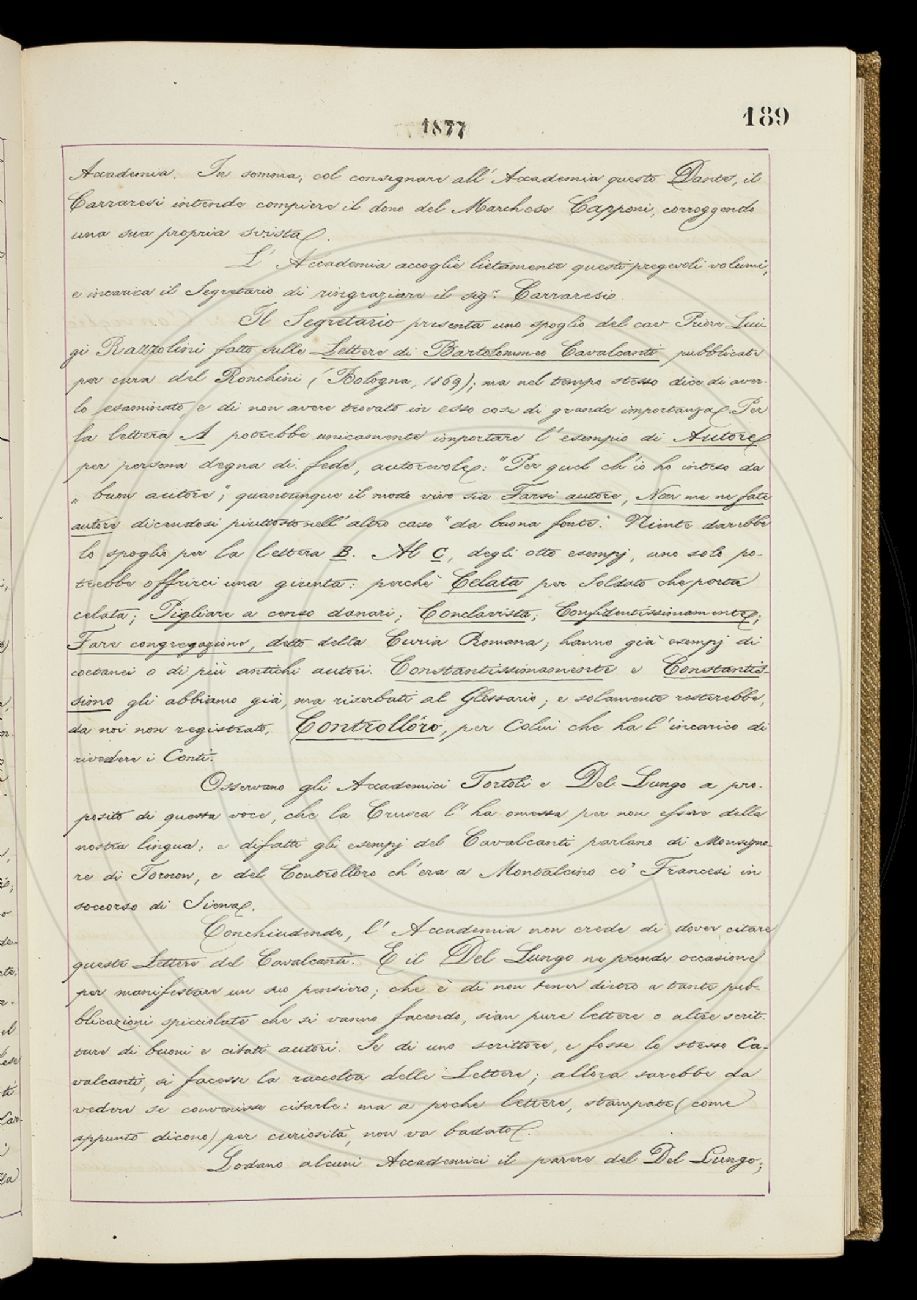 1877
189
Accademia. In somma, col consegnare all'Accademia questo Dante, il
Carraresi intende compiere il dono del Marchese Capponi, correggendo
una sua propria svista.
L'Accademia accoglie lietamente questi pregevoli volumi,
e incarica il Segretario di ringraziare il sigr. Carraresi.
Il Segretario presenta uno spoglio del cav Priore Lui-
gi Razzolini fatto sulle Lettere di Bartolommeo Cavalcanti pubblicate
per cura del Ronchini (Bologna, 1869); ma nel tempo stesso dice di aver-
lo esaminato, e di non avere trovato in esso cose di grande importanza. Per
la lettera A potrebbe unicamente importare l'esempio di Autore
per persona degna di fede, autorevole: "Per quel ch'io ho inteso da
" buon autore"; quantunque il modo vivo sia Farsi autore, Non me ne fate
autore dicendosi piuttosto nell'altro caso "da buona fonte." Niente darebbe
lo spoglio per la lettera B. Al C, degli otto esempj, uno solo po-
trebbe offrirci una giunta: perchè Celata per Soldato che porta
celata; Pigliare a censo danari; Conclavista; Confidentissimamente;
Fare congregazione, detto della Curia Romana; hanno già esempj di
coetanei o di più antichi autori. Constantissimamente e Constantis-
simo gli abbiamo già, ma riserbati al Glossario; e solamente resterebbe,
da noi non registrato, Controllòro, per Colui che ha l'incarico di
rivedere i Conti.
Osservano gli Accademici Tortoli e Del Lungo a pro-
posito di questa voce, che la Crusca l'ha omessa per non essere della
nostra lingua; e difatti gli esempj del Cavalcanti parlano di Monsigno-
re di Tornon, e del Controlloro ch'era a Montalcino co' Francesi in
soccorso di Siena.
Conchiudendo, l'Accademia non crede di dover citare
queste Lettere del Cavalcanti. E il Del Lungo ne prende occasione
per manifestare un suo pensiero; che è di non tener dietro a tante pub-
blicazioni spicciolate che si vanno facendo, sian pure lettere o altre scrit-
ture di buoni e citati autori. Se di uno scrittore, e fosse lo stesso Ca-
valcanti, si facesse la raccolta delle Lettere; allora sarebbe da
vedere se convenisse citarle: ma a poche lettere, stampate (come
appunto dicono) per curiosità, non va badato.
Lodano alcuni Accademici il parere del Del Lungo;